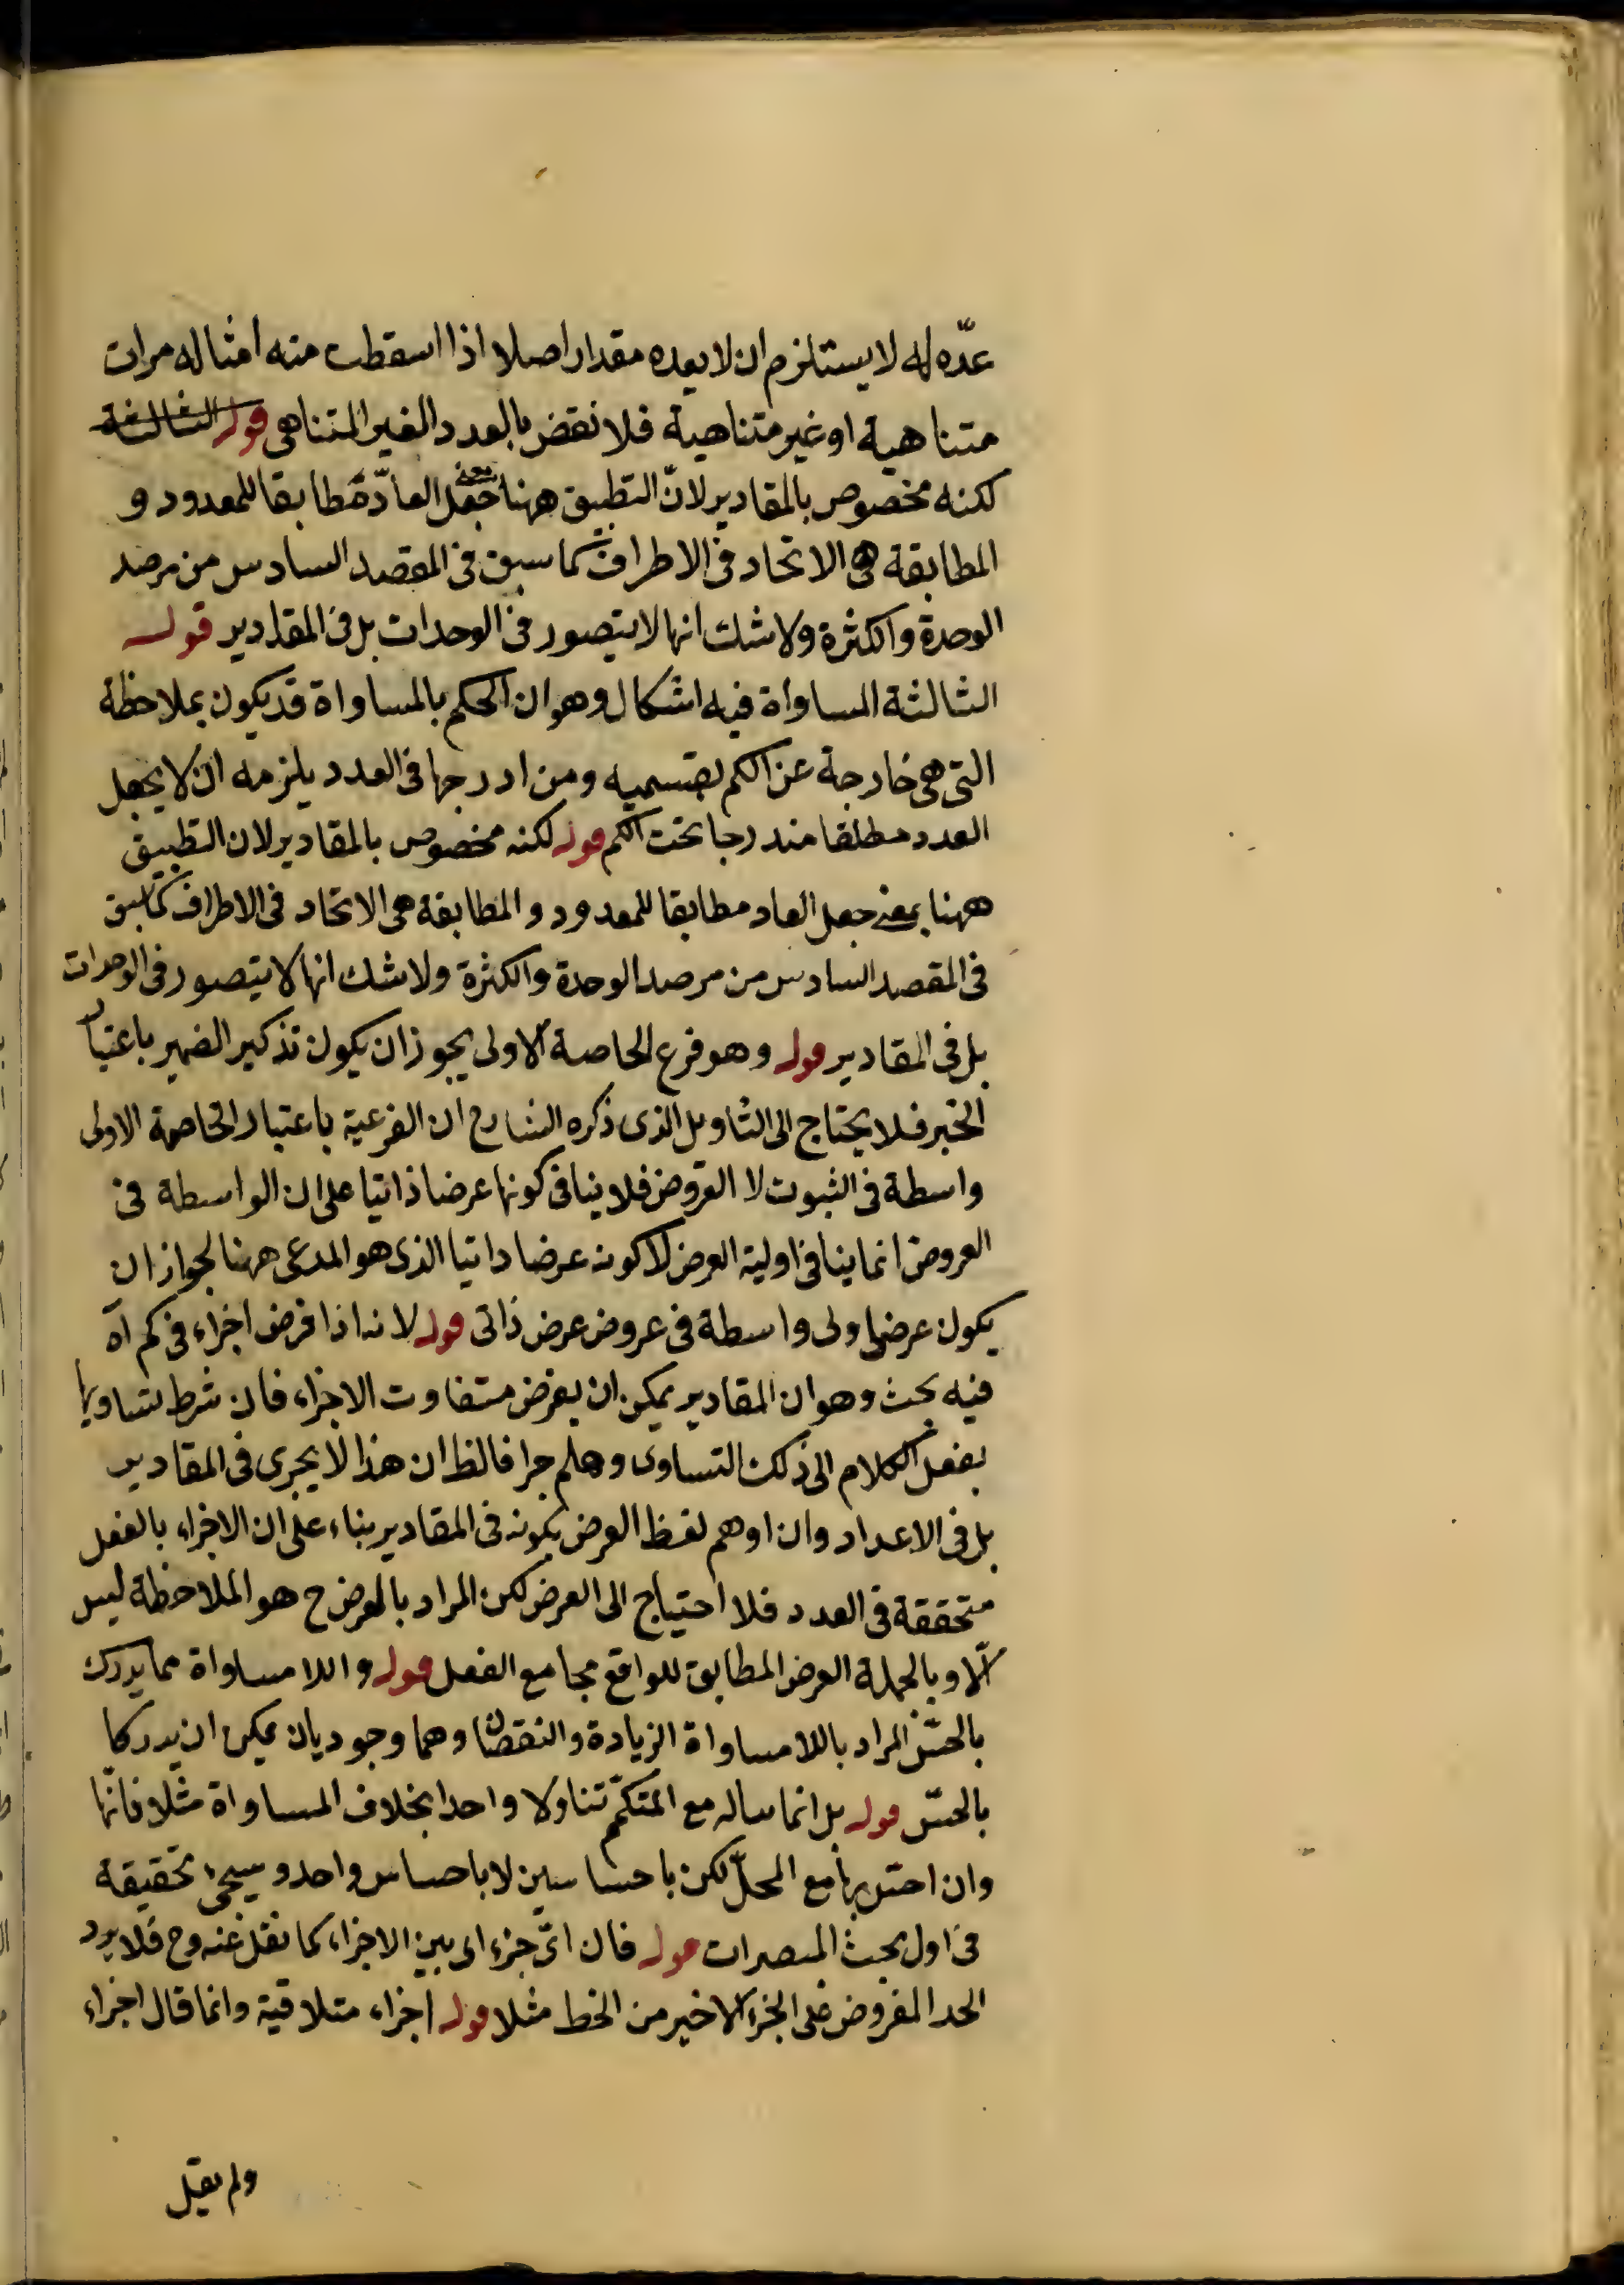 عدّه له لا يستلزم ان لا يعده مقدار اصلا اذا اسقطت منه امثاله مرات
متناهية او غير متناهية فلا نقض بالعدد الغير المتناهى قوله الثالثة
لكنه مخصوص بالمقادير لانّ التطبيق ههنا بمعنى جعل العادّ مطابقا للمعدود و
المطابقة هى الاتحاد فى الاطراف كما سبق فى المقصد السادس من مرصد
الوحدة والكثرة ولا شك انها لا يتصور فى الوحدات بل فى المقادير قوله
الثالثة المساواة فيه اشكال وهو ان الحكم بالمساواة قد يكون بملاحظة
التى هى خارجة عن الكم بقسميه ومن ادرجها فى العدد يلزمه ان لا يجعل
العدد مطلقا مندرجا تحت الكم قوله لكنه مخصوص بالمقادير لان التطبيق
ههنا بمعنى جعل العاد مطابقا للمعدود و المطابقة هى الاتحاد فى الاطراف كما سبق
فى المقصد السادس من مرصد الوحدة والكثرة ولا شك انها لا يتصور فى الوحدات
بل فى المقادير قوله وهو فرع الخاصة الاولى يجوز ان يكون تذكير الضمير باعتبار
الخبر فلا يحتاج الى التاويل الذى ذكره الشارح ان الفرعية باعتبار الخاصة الاولى
واسطة فى الثبوت لا العروض فلا ينافى كونها عرضا ذاتيا على ان الواسطة فى
العروض انما ينافى اولية العرض لا كونه عرضا ذاتيا الذى هو المدعى ههنا لجواز ان
يكون عرض اولى واسطة فى عروض عرض ذاتى قوله لانه اذا فرض اجزاء فى كم آه
فيه بحث وهو ان المقادير يمكن ان يفرض متفاوت الاجزاء فان شرط تساويها
ينقل الكلام الى ذلك التساوى وهلم جرا فالظ ان هذا لا يجرى فى المقادير
بل فى الاعداد وان اوهم لفظ الفرض بكونه فى المقادير بناء على ان الاجزاء بالفعل
متحققة فى العدد فلا احتياج الى الفرض لكن المراد بالفرض ح هو الملاحظة ليس
الّا وبالجملة الفرض المطابق للواقع مجامع الفعل قوله واللا مساواة مما يدرك
بالحسّ المراد باللا مساواة الزيادة والنقصان وهما وجوديان يمكن ان يدركا
بالحسّ قوله بل انما يناله مع المتكمّم تناولا واحدا بخلاف المساواة مثلا فانّها
وان احسّ بها مع المحلّ لكن باحساسين لا باحساس واحد وسيجئ تحقيقه
فى اول بحث المبصرات قوله فان اىّ جزء اى بين الاجزاء كما نقل عنه وح فلا يرد
الحد المفروض على الجزء الاخير من الخط مثلا قوله اجزاء متلاقية وانما قال اجزاء
ولم يقل